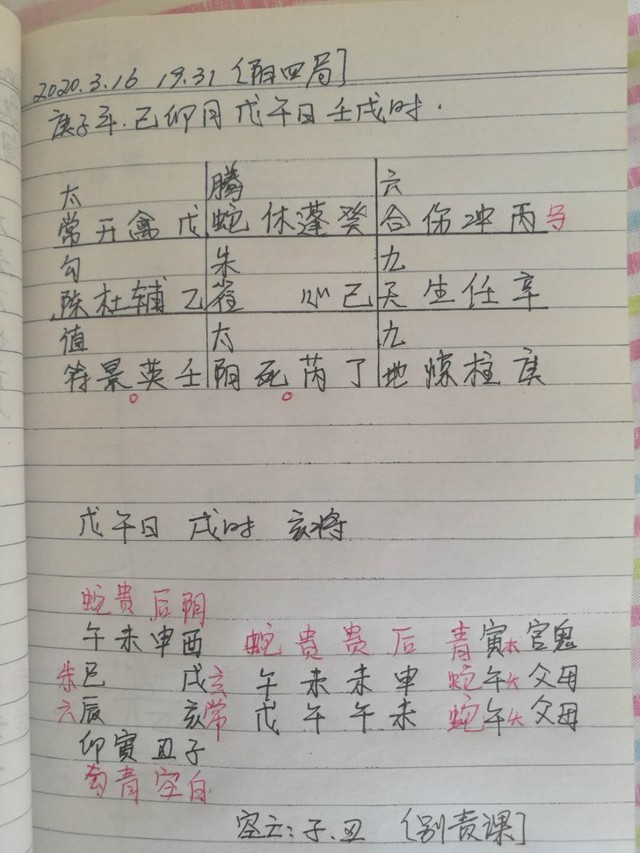 2020.3.16 19.31 [阳四局]
庚子年.己卯月戊午日壬戌时.
太 腾 六
常开禽戊 蛇休蓬癸 合伤冲丙马
勾 朱 九
陈杜辅乙 雀 心己 天生任辛
值 太 九
符景英壬 阴死芮丁 地惊柱庚
戊午日 戌时 亥将
蛇贵后阴
午未申酉 蛇贵贵后 青寅木官鬼
朱巳 戌玄 午未未申 蛇午火父母
六辰 亥常 戊午午未 蛇午火父母
卯寅丑子
勾青空白
空亡:子.丑 [别责课]